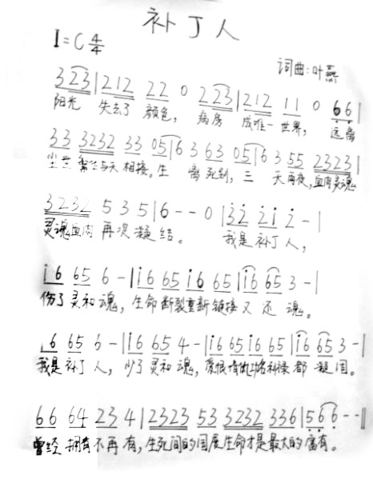 补丁人
1=C 4/4
词曲:叶
323|212 22 0 223|212 11 0 66|
阳光 失去了 颜色, 病房 成唯一世界, 这
33 3232 33 05|6 3 63 05|6 3 55 2323|
与天相接。生 离死别, 三 天两夜, 血肉灵魂
3232 5 3 5|6 - - 0|32 21 2 -|
灵魂血肉 再次凝结。 我是补丁人,
16 65 6 -|16 65 16 65|16 65 3 -|
伤了灵和魂, 生命断裂重新链接又还魂。
16 65 6 -|16 65 4 -|16 65 16 65|16 65 3 -|
我是补丁人, 少了灵和魂, 都凝固。
66 64 23 4|2323 53 3232 336|566 - -||
曾经 拥有不再有, 生死间的 生命才是最大的富有。